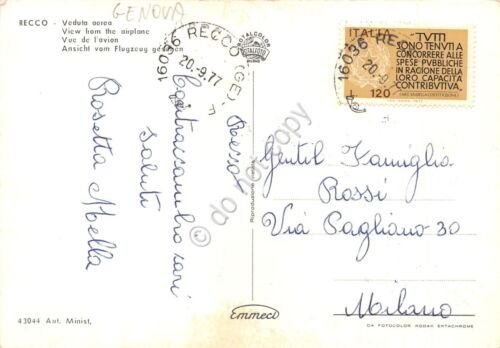 GENOVA
RECCO - Veduta aerea
View from the airplane
Vue de l'avion
Ansicht vom Flugzeug gesehen
ROTALCOLOR
ROTALFOTO
16036 RECCO (GE)
20.-9.77
16036 RE
20.-9
ITALIA
L 120
"TUTTI
SONO TENUTI A
CONCORRERE ALLE
SPESE PUBBLICHE
IN RAGIONE DELLA
LORO CAPACITÀ
CONTRIBUTIVA."
Recco
Contraccambio cari
Saluti
Rosetta Mella
do not copy
Riproduzione
Gentil Famiglia
Rossi
Via Pagliano 30
Milano
43044 Aut. Minist.
Emmeci
DA FOTOCOLOR KODAK EKTACHROME